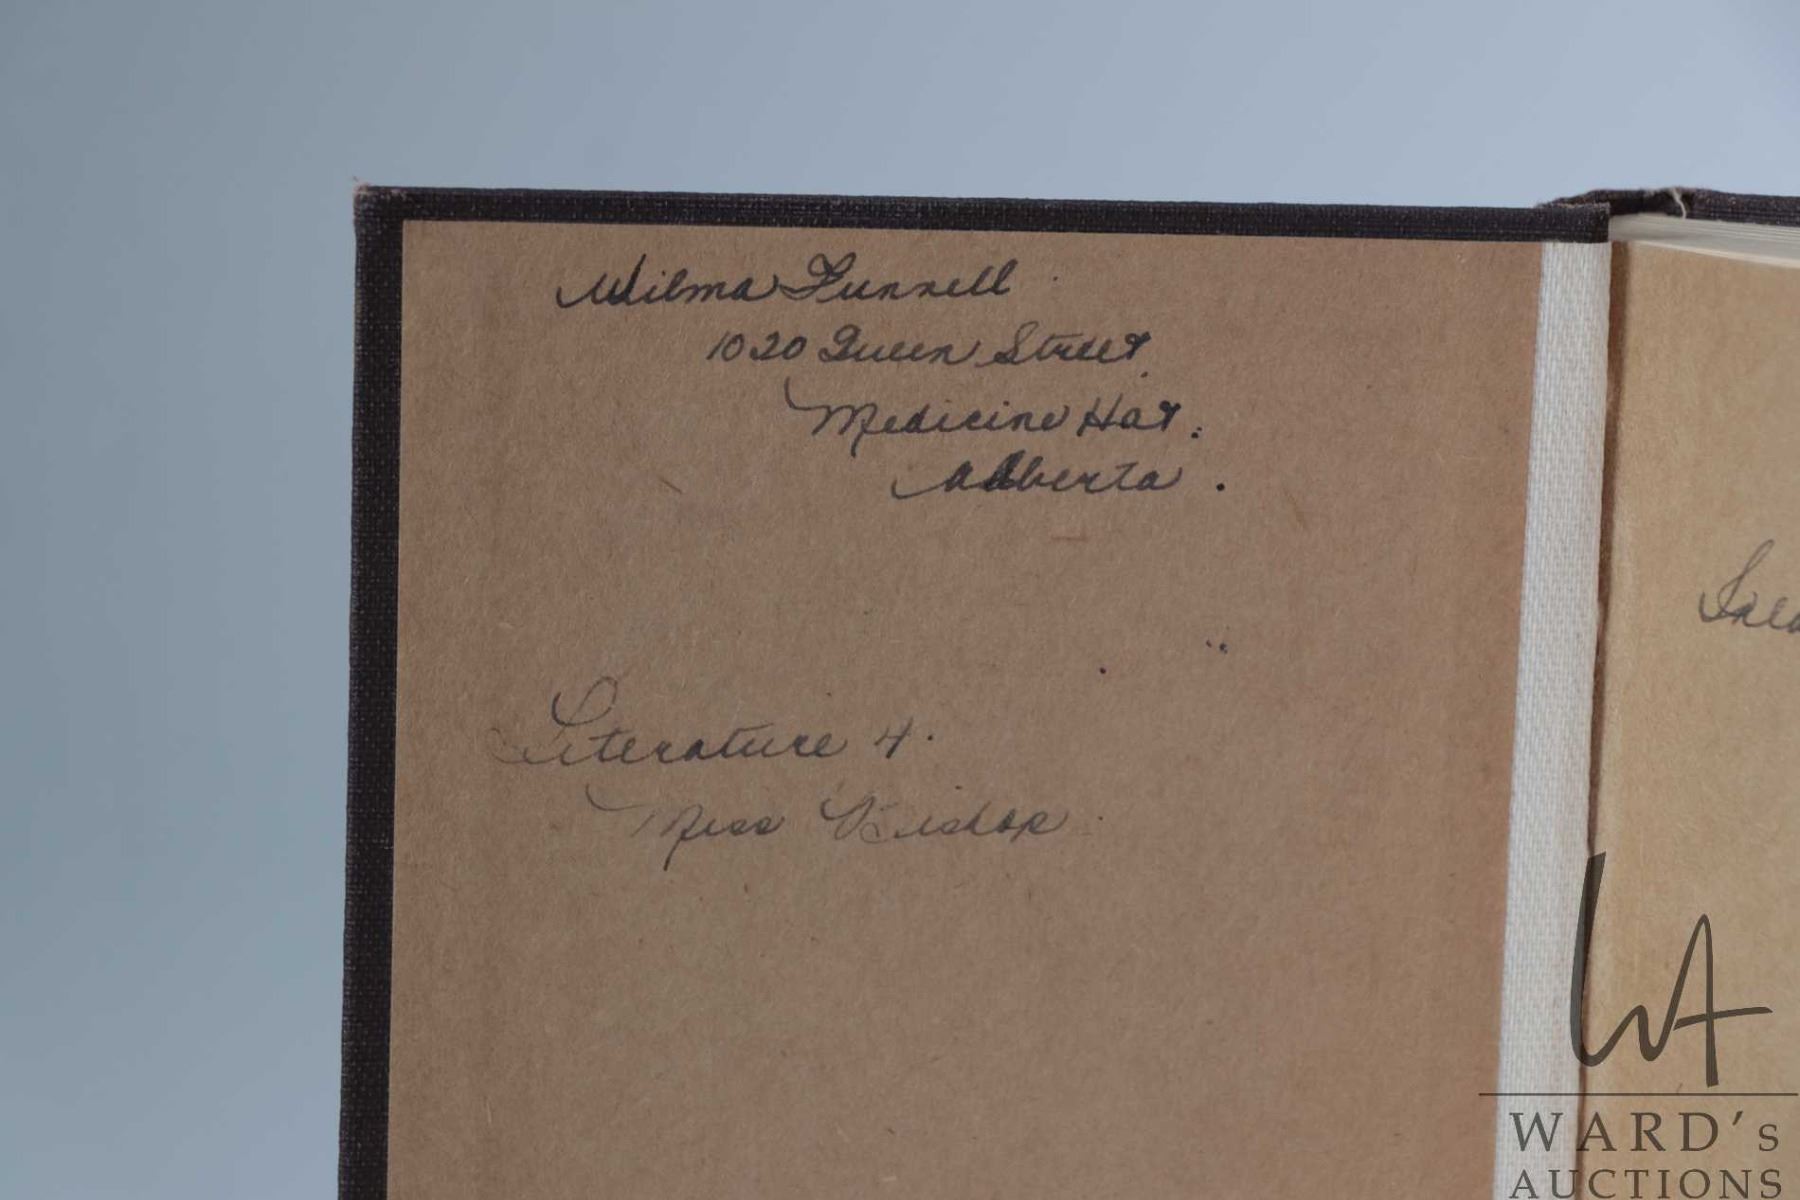 Wilma Funnell
1020 Queen Street
Medicine Hat.
Alberta.
Literature 4.
Miss Bishop
WA
WARD's
AUCTIONS